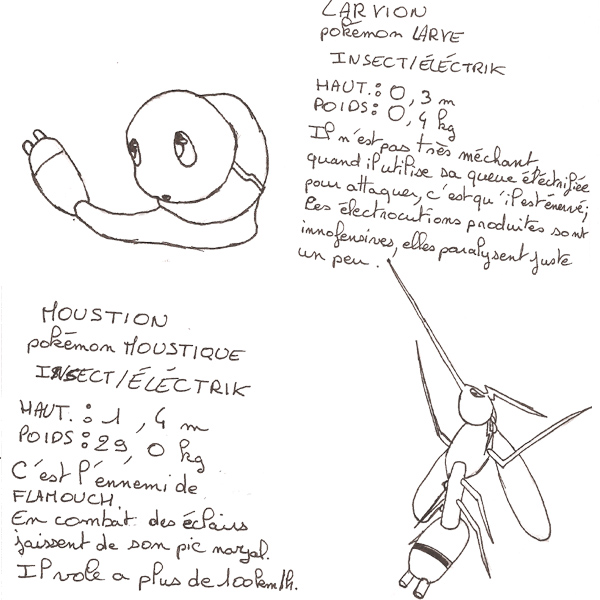 LARVION
pokémon LARVE
INSECT/ÉLÉCTRIK
HAUT.: 0,3 m
POIDS: 0,4 kg
Il n'est pas très méchant
quand il utilise sa queue éléctrifiée
pour attaquer, c'est qu'il est énervé;
Les électrocutions produites sont
innofensives, elles paralysent juste
un peu.
MOUSTION
pokémon MOUSTIQUE
INSECT/ÉLÉCTRIK
HAUT.: 1,4 m
POIDS: 29,0 kg
C'est l'ennemi de
FLAMOUCH.
En combat des éclairs
jaissent de son pic nazal.
Il vole a plus de 100km/h.